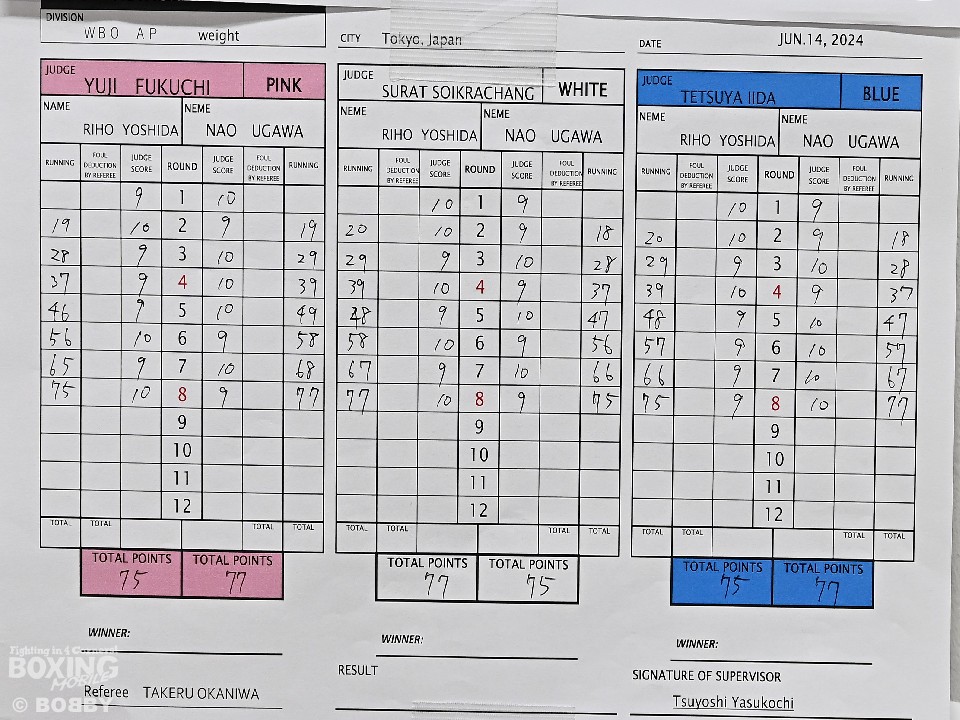 DIVISION
WBO AP weight
CITY Tokyo, Japan
DATE JUN.14, 2024
JUDGE YUJI FUKUCHI PINK
NAME NEME
RIHO YOSHIDA NAO UGAWA
RUNNING FOUL DEDUCTION BY REFEREE JUDGE SCORE ROUND JUDGE SCORE FOUL DEDUCTION BY REFEREE RUNNING
9 1 10
19 10 2 9 19
28 9 3 10 29
37 9 4 10 39
46 9 5 10 49
56 10 6 9 58
65 9 7 10 68
75 10 8 9 77
9
10
11
12
TOTAL TOTAL TOTAL TOTAL
TOTAL POINTS TOTAL POINTS
75 77
WINNER:
Referee TAKERU OKANIWA
JUDGE SURAT SOIKRACHANG WHITE
NEME NEME
RIHO YOSHIDA NAO UGAWA
RUNNING FOUL DEDUCTION BY REFEREE JUDGE SCORE ROUND JUDGE SCORE FOUL DEDUCTION BY REFEREE RUNNING
10 1 9
20 10 2 9 18
29 9 3 10 28
39 10 4 9 37
48 9 5 10 47
58 10 6 9 56
67 9 7 10 66
77 10 8 9 75
9
10
11
12
TOTAL TOTAL TOTAL TOTAL
TOTAL POINTS TOTAL POINTS
77 75
WINNER:
RESULT
JUDGE TETSUYA IIDA BLUE
NEME NEME
RIHO YOSHIDA NAO UGAWA
RUNNING FOUL DEDUCTION BY REFEREE JUDGE SCORE ROUND JUDGE SCORE FOUL DEDUCTION BY REFEREE RUNNING
10 1 9
20 10 2 9 18
29 9 3 10 28
39 10 4 9 37
48 9 5 10 47
57 9 6 10 57
66 9 7 10 67
75 9 8 10 77
9
10
11
12
TOTAL TOTAL TOTAL TOTAL
TOTAL POINTS TOTAL POINTS
75 77
WINNER:
SIGNATURE OF SUPERVISOR
Tsuyoshi Yasukochi
Fighting in 4 Corners!
BOXING
MOBILE
© BOBBY